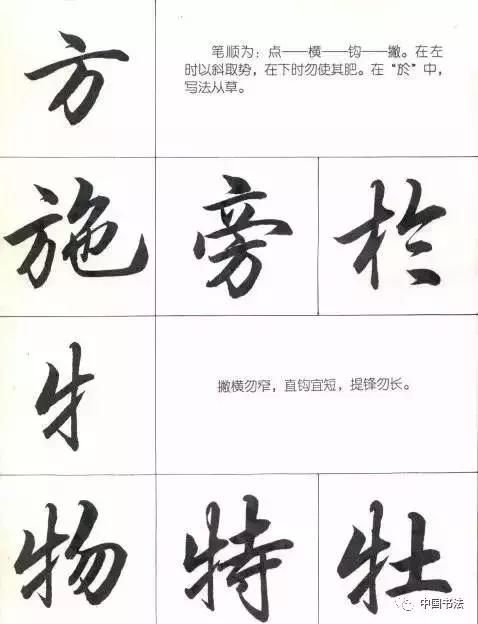 方
笔顺为：点——横——钩——撇。在左
时以斜取势，在下时勿使其肥。在“於”中，
写法从草。
施 旁 於
牜
撇横勿窄，直钩宜短，提锋勿长。
物 特 牡
中国书法